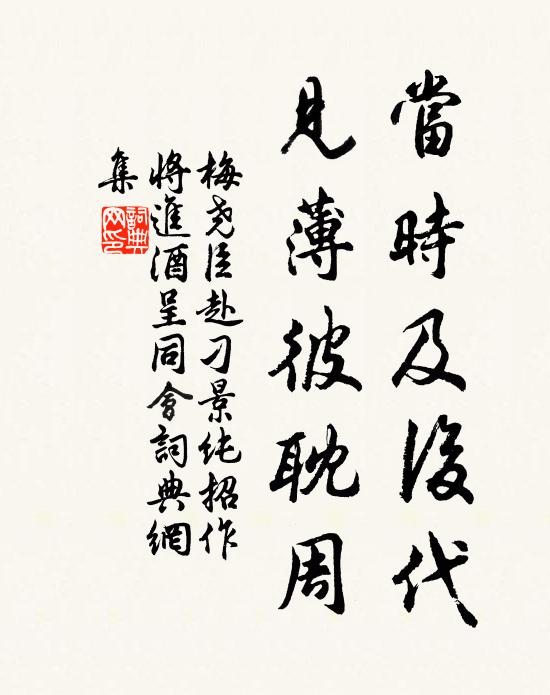 當時及後代
見薄彼耽周
梅堯臣赴刁景純招作
將進酒呈同會詞典網
集
詞典
网印